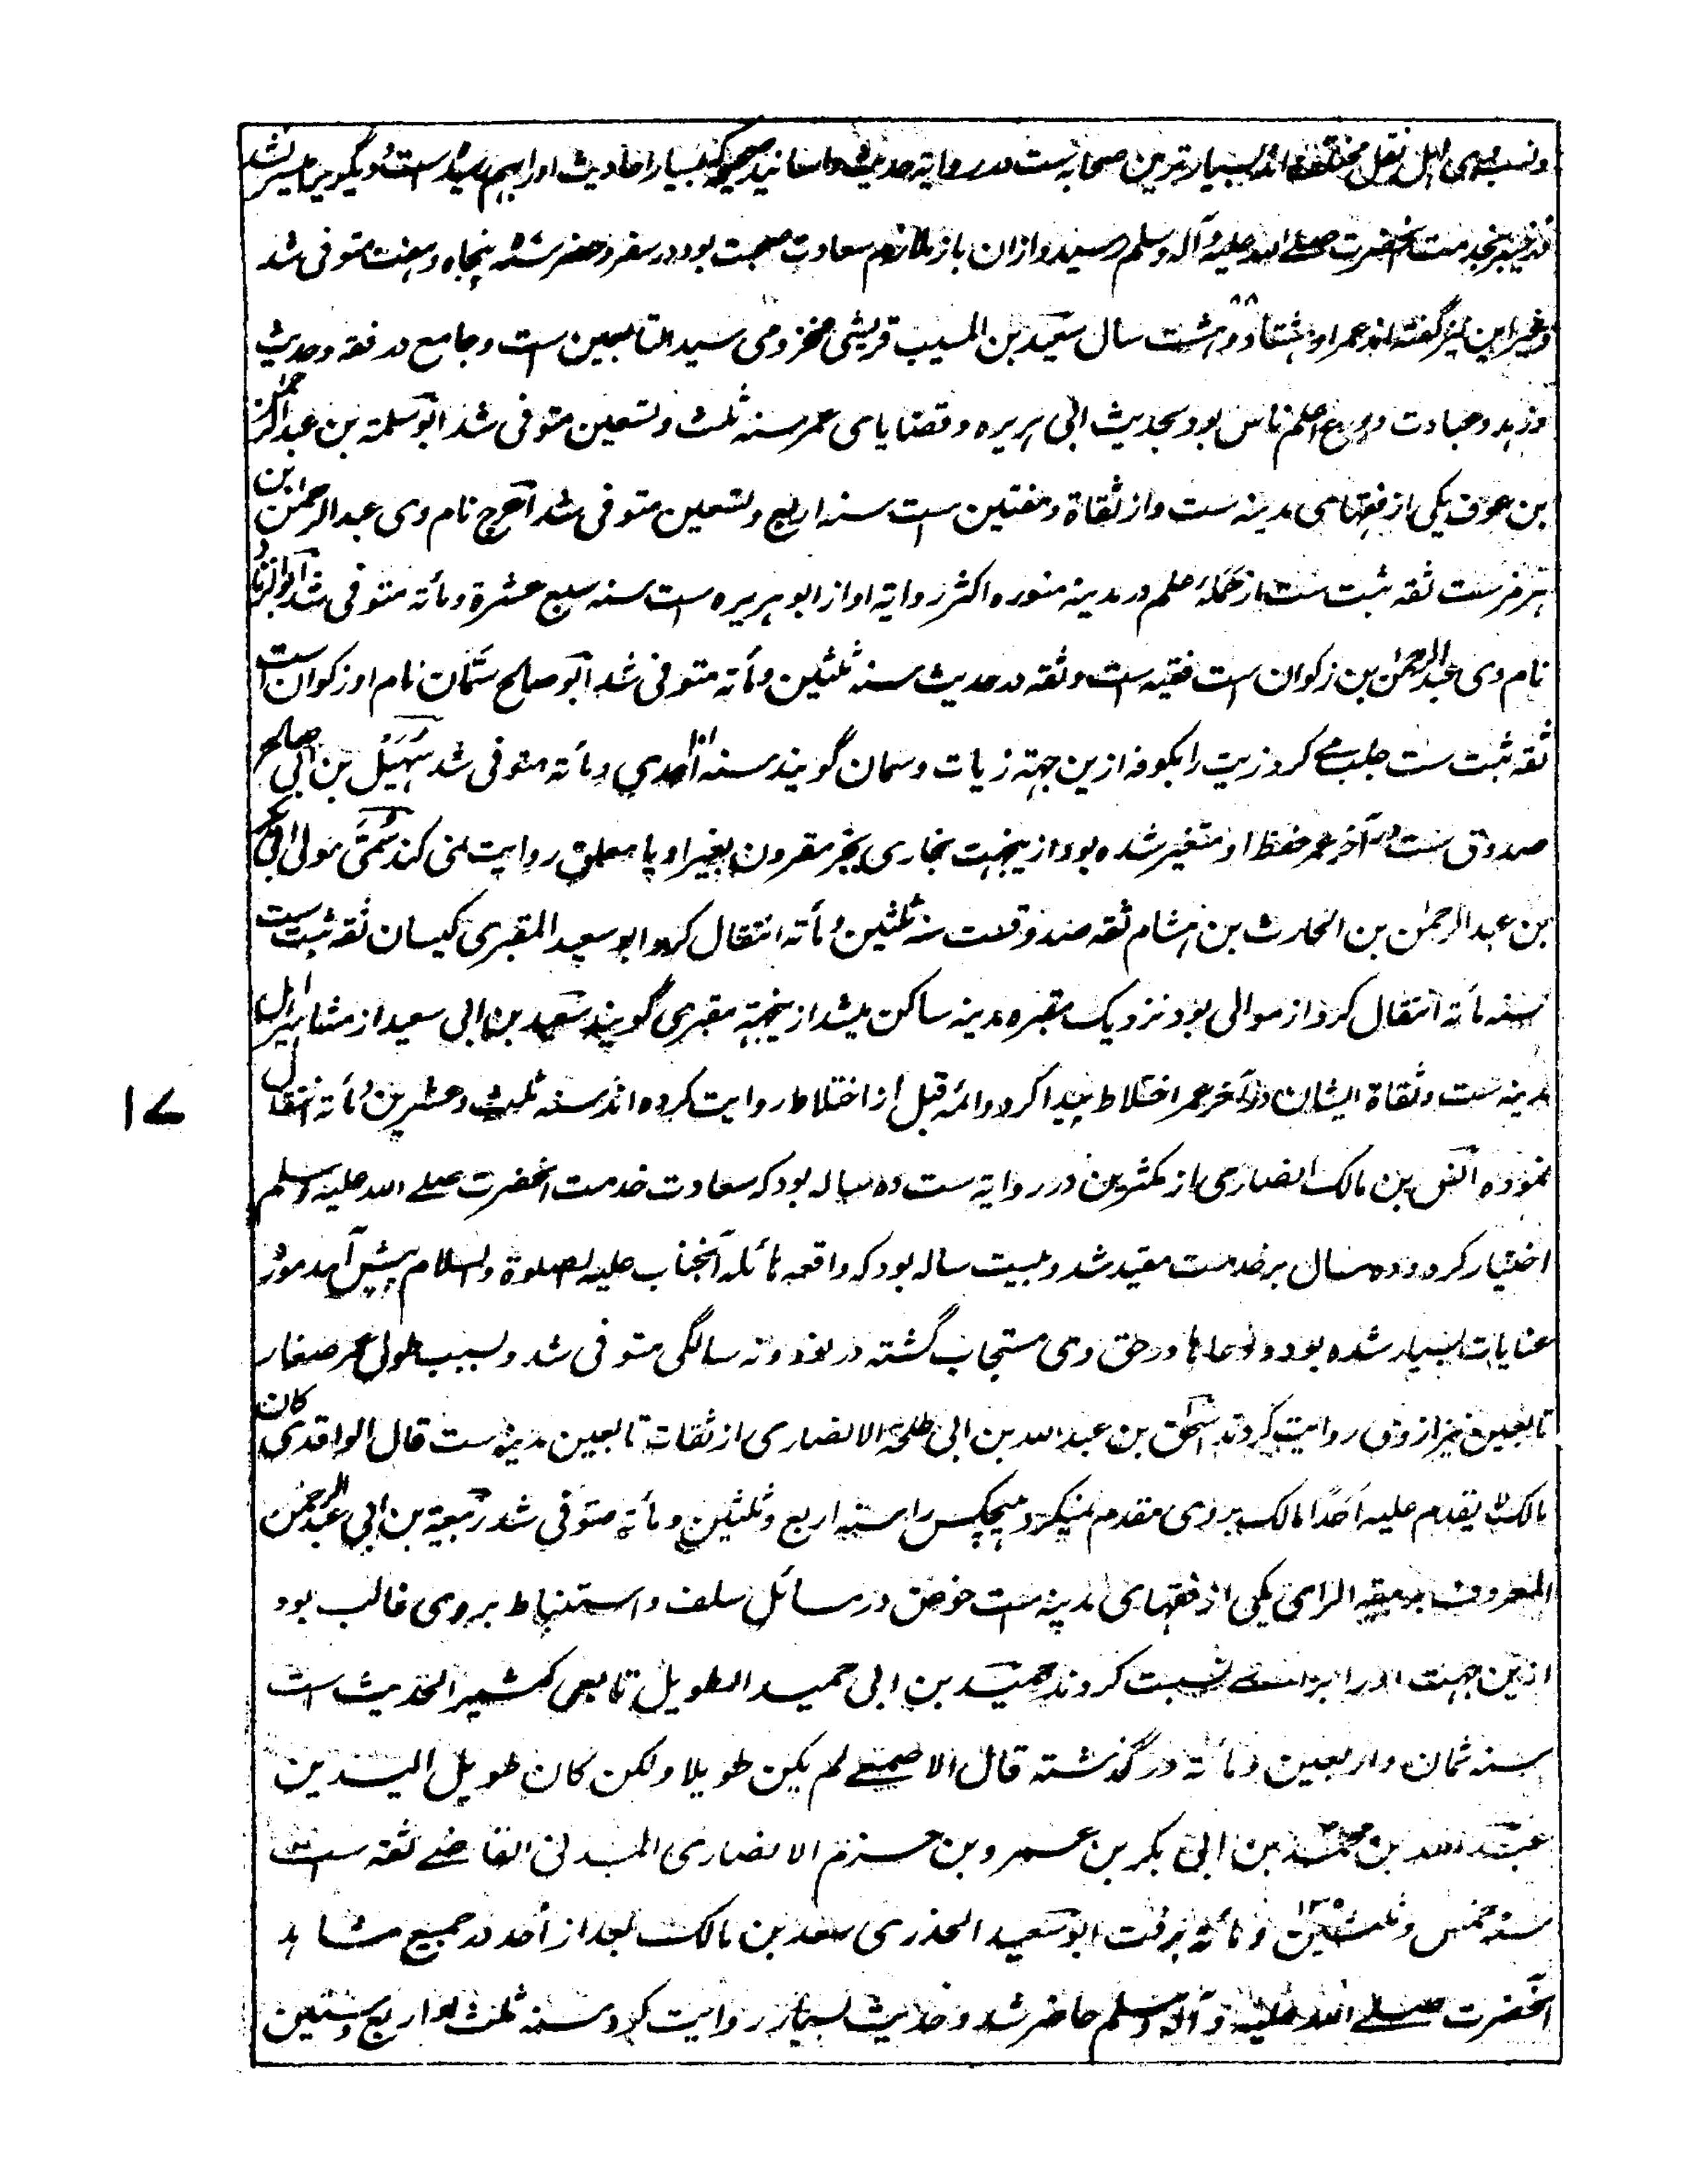 ونسب وی اہل نقل مختلف اند بسیارترین صحابہ ست در روایۃ حدیث و اسانید صحیحہ کہ بسیار احادیث او را بہم رسیدہ است
در خیبر بخدمت آنحضرت صلے اللہ علیہ وآلہ وسلم رسید و ازان باز ملازم سعادت صحبت بود در سفر و حضر سنہ پنجاہ و ہفت متوفی شد
و غیر این نیز گفتہ اند عمر او ہفتاد و ہشت سال سعید بن المسیب قریشی مخزومی سید التابعین ست و جامع در فقہ و حدیث
و زہد و عبادت و ورع اعلم ناس بود بحدیث ابی ہریرہ و قضایای عمر سنہ ثلث و تسعین متوفی شد ابو سلمۃ بن عبدالرحمن
بن عوف یکی از فقہای مدینہ ست و از ثقاۃ و مفتین ست سنہ اربع و تسعین متوفی شد اعرج نام وی عبدالرحمن بن
ہرمز ست ثقہ ثبت ست از حملۂ علم در مدینہ منورہ اکثر روایۃ او از ابو ہریرہ ست سنہ سبع عشرۃ و مأتہ متوفی شد ابو الزناد
نام وی عبدالرحمن بن زکوان ست فقیہ ست و ثقہ در حدیث سنہ ثلثین و مأتہ متوفی شد ابو صالح سمّان نام او زکوان ست
ثقہ ثبت ست جلب مے کرد زیت را بکوفہ ازین جہتہ زیات و سمان گویند سنہ احدی و مأتہ متوفی شد سہیل بن ابی صالح
صدوق ست در آخر عمر حفظ او متغیر شدہ بود ازینجہت بخاری بجز مقرون بغیر او یا معلق روایت نمی کند سُمَیّ مولی ابی بکر
بن عبدالرحمن بن الحارث بن ہشام ثقہ صدوقست سنہ ثلثین و مأتہ انتقال کرد ابو سعید المقبری کیسان ثقہ ثبت ست
سنہ مأتہ انتقال کرد از موالی بود نزدیک مقبرہ مدینہ ساکن میشد ازینجہتہ مقبری گویند سعید بن ابی سعید از مشاہیر اہل
مدینہ ست و ثقاۃ ایشان در آخر عمر اختلاط پیدا کرد و ائمہ قبل از اختلاط روایت کردہ اند سنہ ثلث و عشرین و مأتہ انتقال
نمودہ انس بن مالک انصاری از مکثرین در روایۃ ست دہ سالہ بود کہ سعادت خدمت آنحضرت صلے اللہ علیہ وسلم
اختیار کرد و دہ سال بر خدمت مقید شد و بیست سالہ بود کہ واقعہ ہائلہ آنجناب علیہ الصلوۃ والسلام پیش آمد مورد
عنایات بسیار شدہ بود و دعاہا در حق وی مستجاب گشتہ در نود و نہ سالگی متوفی شد و بسبب طول عمر صغار
تابعین نیز از وی روایت کردند اسحٰق بن عبداللہ بن ابی طلحۃ الانصاری از ثقات تابعین مدینہ ست قال الواقدی کان
مالک لا یقدم علیہ احدًا مالک بر وی مقدم نمیکرد ہیچکس را سنہ اربع و ثلثین و مأتہ متوفی شد ربیعۃ بن ابی عبدالرحمن
المعروف بربیعۃ الرای یکی از فقہای مدینہ ست خوض در مسائل سلف و استنباط بر وی غالب بود
ازین جہت او را برای نسبت کردند حمید بن ابی حمید الطویل تابعی کثیر الحدیث ست
سنہ ثمان و اربعین و مأتہ درگذشتہ قال الاصمعے لم یکن طویلا ولکن کان طویل الیدین
عبداللہ بن محمد بن ابی بکر بن عمرو بن حزم الانصاری المدنی القاضے ثقہ ست
سنہ خمس و ثلثین و مأتہ برفت ابو سعید الخدری سعد بن مالک بعد از احد در جمیع مشاہد
آنحضرت صلے اللہ علیہ وآلہ وسلم حاضر شد و حدیث بسیار روایت کرد سنہ ثلث او اربع و ستین
١٧